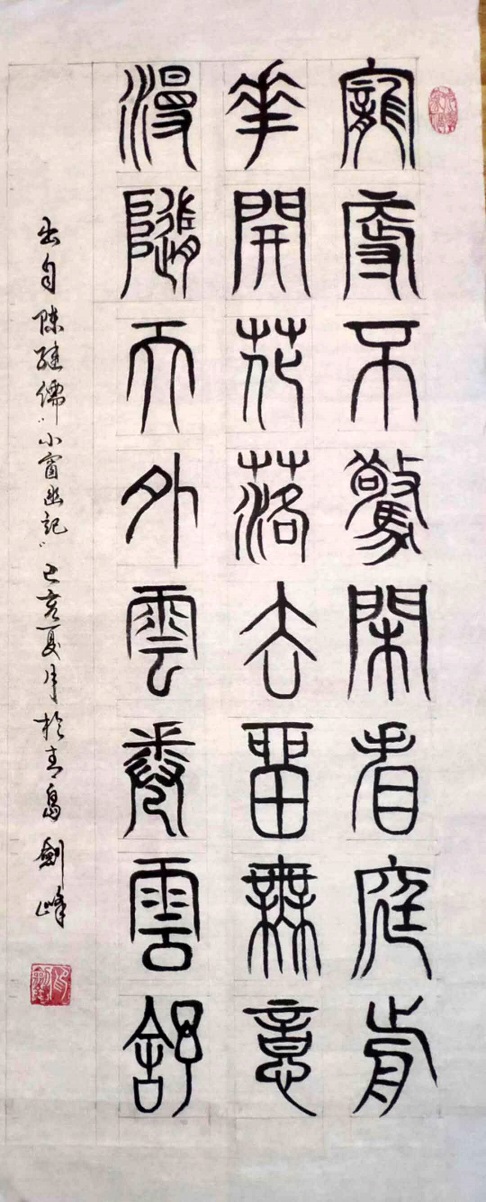 寵辱不驚閑看庭前
華開花落去留無意
漫隨天外雲卷雲舒
出自陳繼儒"小窗幽記"己亥夏月於青島劍峰